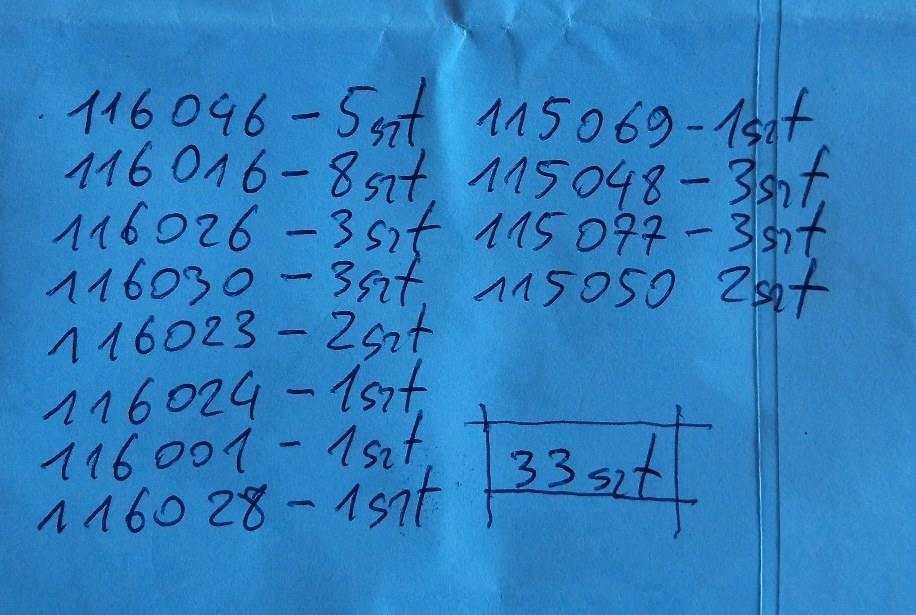 116046 - 5szt
116016 - 8szt
116026 - 3szt
116030 - 3szt
116023 - 2szt
116024 - 1szt
116001 - 1szt
116028 - 1szt
115069 - 1szt
115048 - 3szt
115077 - 3szt
115050 2szt
33szt